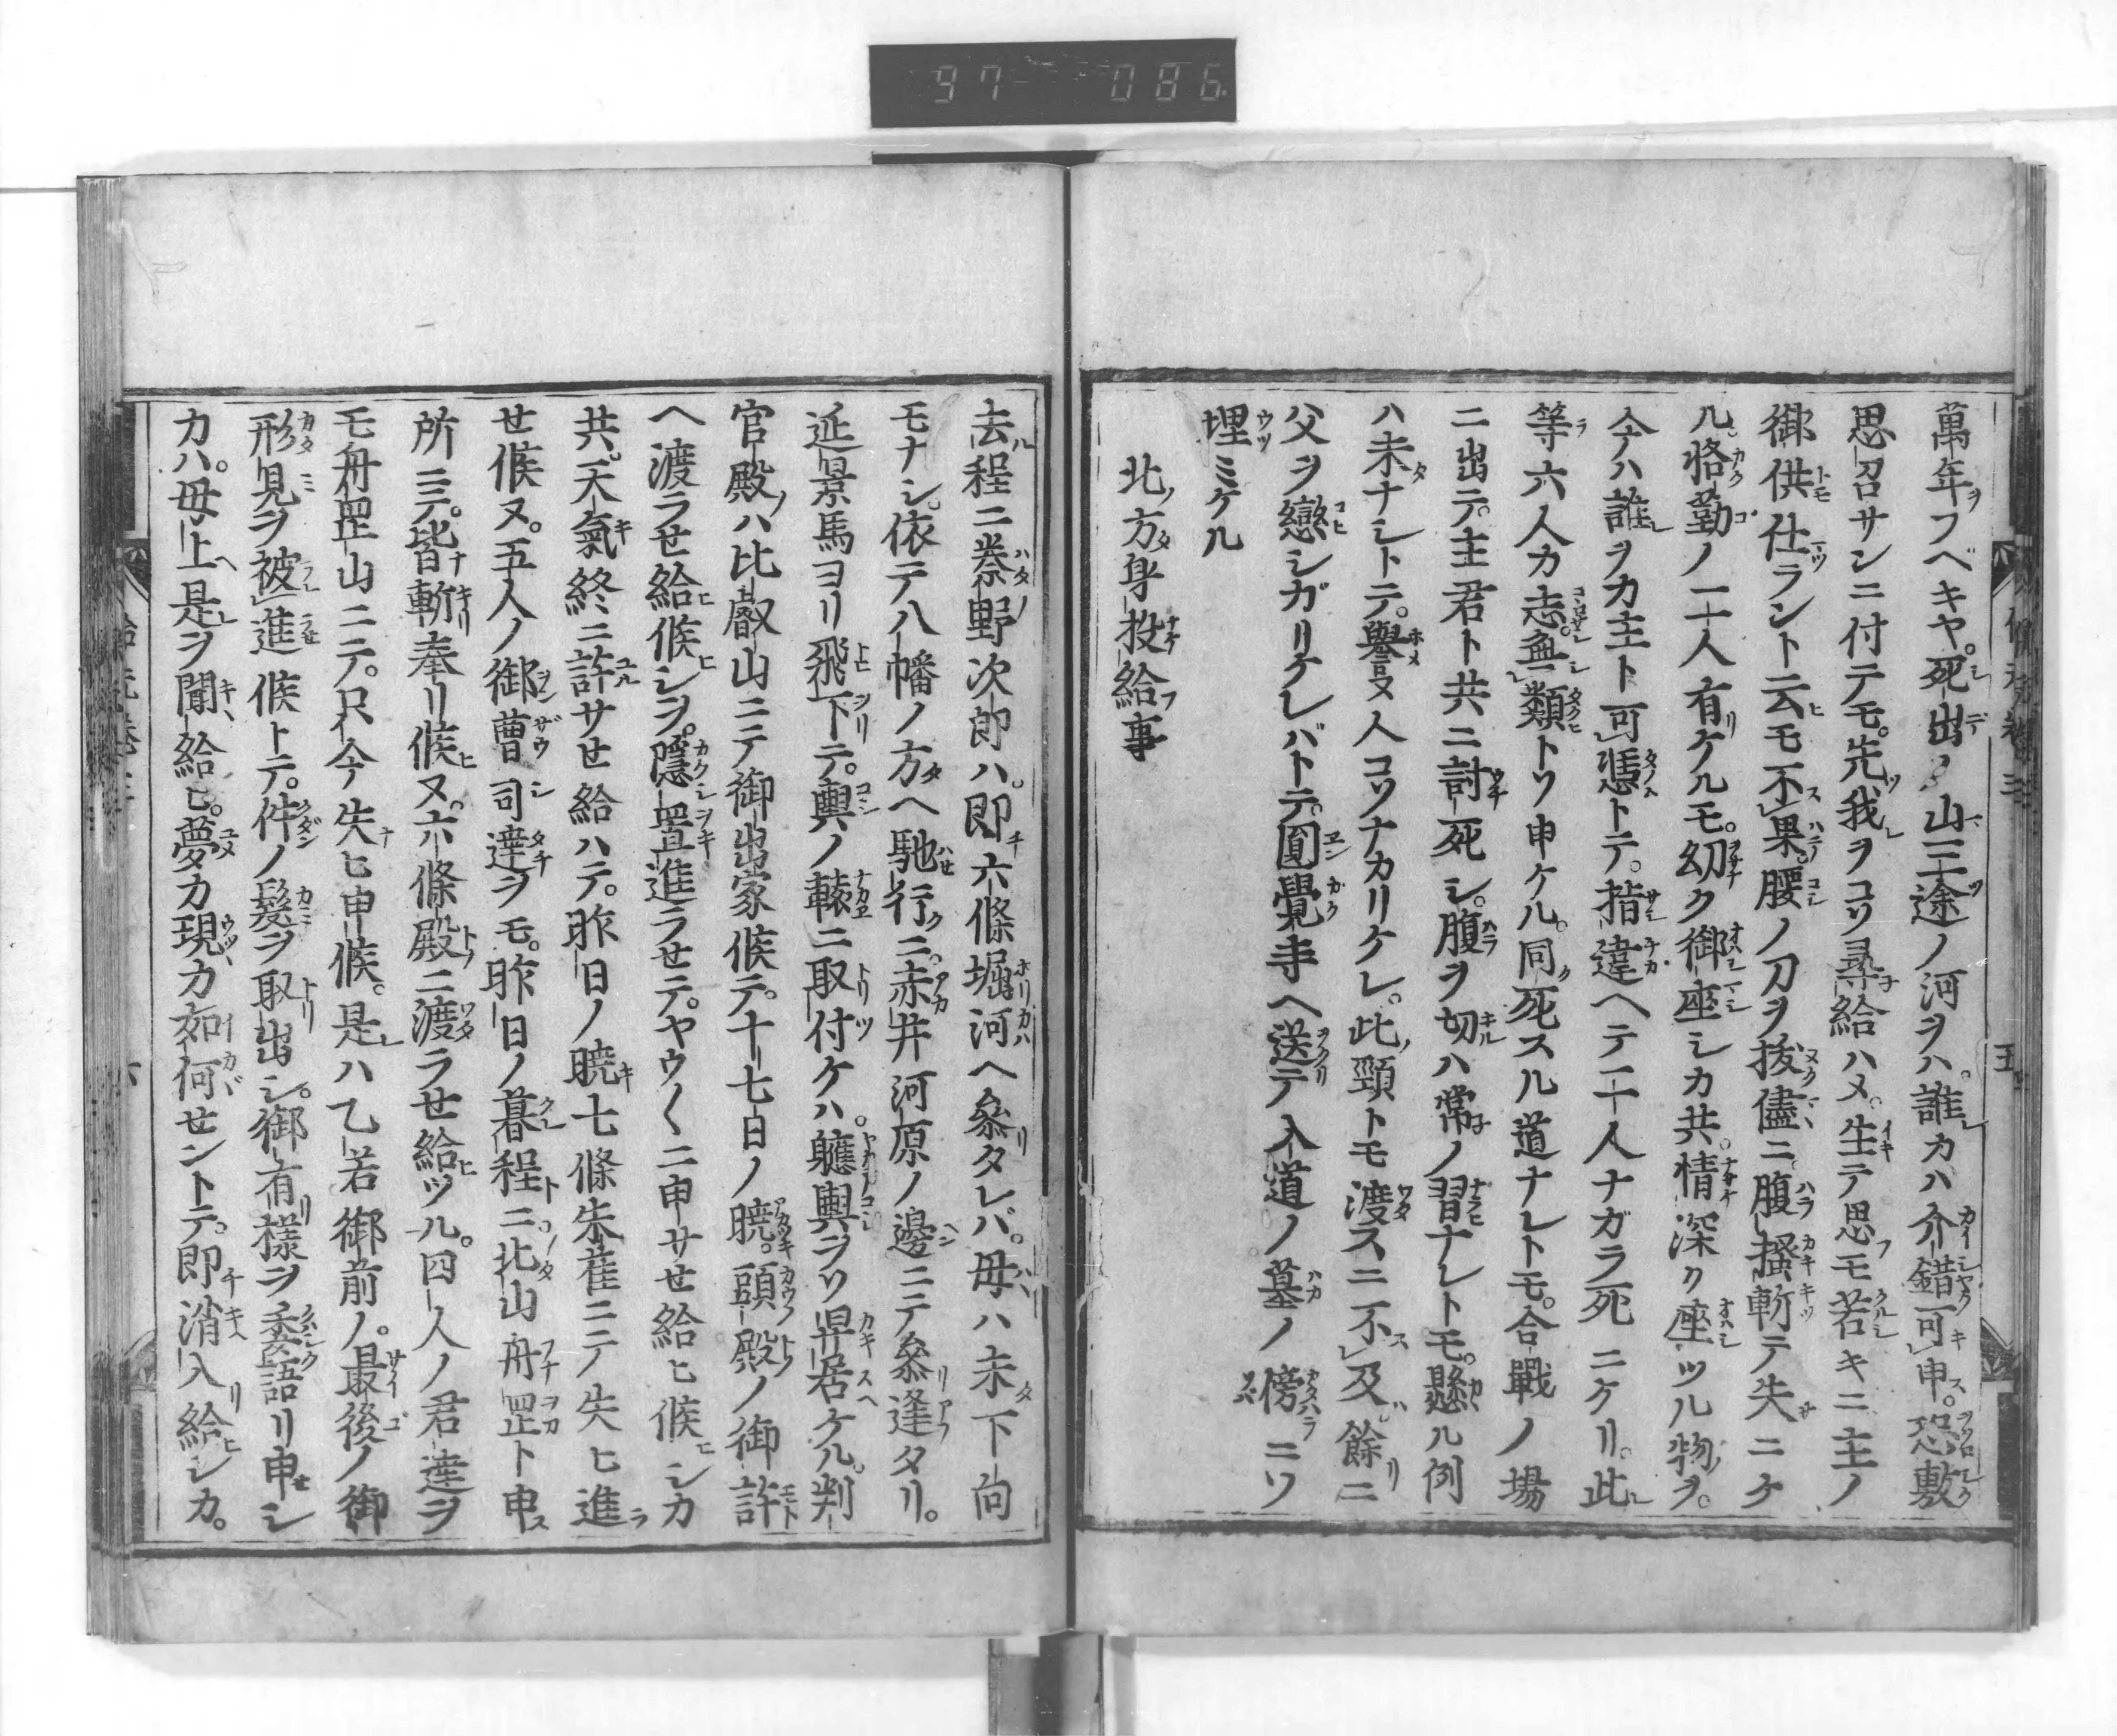 97 086
萬年フベキヤ。死出ノ山三途ノ河ヲハ。誰カハ介錯可申。恐敷
思召サンニ付テモ。先我ヲコソ尋給ハメ。生テ思モ苦キニ主ノ
御供仕ラント云モ不果。腰ノ刀ヲ拔儘ニ腹搔斬テ失ニケ
ル。恪勤ノ二人有ケルモ。幼ク御座シカ共。情深ク座ツル物ヲ。
今ハ誰ヲカ主ト可憑トテ。指違ヘテ二人ナガラ死ニケリ。此
等六人カ志。無類トソ申ケル。同死スル道ナレトモ。合戰ノ場
ニ出テ。主君ト共ニ討死シ。腹ヲ切ハ常ノ習ナレトモ。懸ル例
ハ未ナシトテ。譽ヌ人コソナカリケレ。此頸トモ渡スニ不及餘ニ
父ヲ戀シガリケレバトテ。圓覺寺ヘ送テ入道ノ墓ノ傍ニソ
埋ミケル
北方身投給事
去程ニ桊野次郎ハ。即六條堀河ヘ參タレバ。母ハ未下向
モナシ。依テ八幡ノ方ヘ馳行ニ。赤井河原ノ邊ニテ參逢タリ。
延景馬ヨリ飛下テ。輿ノ轅ニ取付ケハ。軈輿ヲソ舁居ケル。判
官殿ハ比叡山ニテ御出家候テ。十七日ノ曉。頭殿ノ御許
ヘ渡ラせ給候シヲ。隱置進ラせテ。ヤウ〱ニ申サせ給ヒ候シカ
共。天氣終ニ許サせ給ハテ。昨日ノ曉七條朱雀ニテ失ヒ進
せ候ヌ。五人ノ御曹司達ヲモ。昨日ノ暮程ニ。北山舟罡ト申
所ニテ。皆斬奉リ候ヌ。六條殿ニ渡ラせ給ツル。四人ノ君達ヲ
モ舟罡山ニテ。只今失ヒ申候。是ハ乙若御前ノ。最後ノ御
形見ヲ被進候トテ。件ノ髮ヲ取出シ。御有樣ヲ委語リ申シ
カハ。母上是ヲ聞給ヒ。夢カ現カ如何せントテ。即消入給シカ。